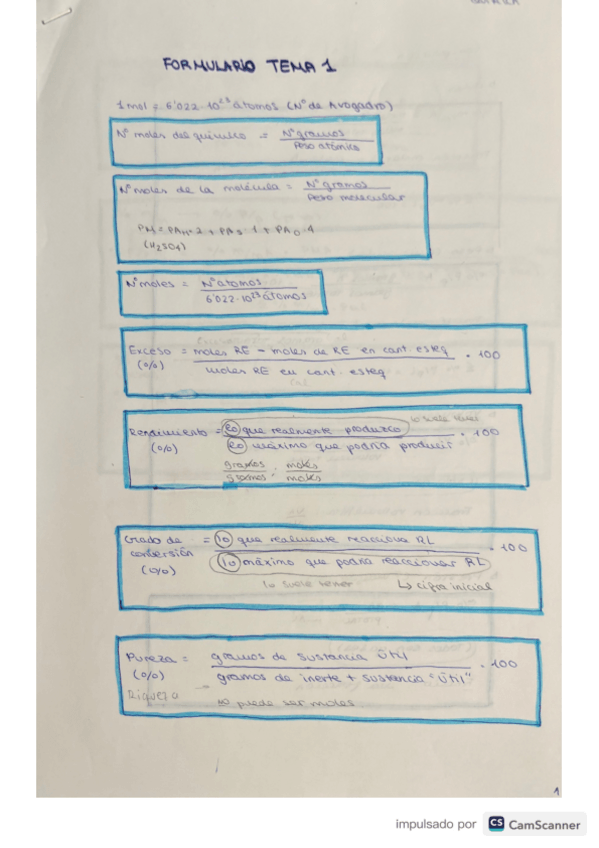 FORMULARIO TEMA 1
1 mol = 6'022·10²³ átomos (Nº de Avogadro)
Nº moles del químico = Nº gramos / Peso atómico
Nº moles de la molécula = Nº gramos / Peso molecular
PM = PA H · 2 + PA S · 1 + PA O · 4
(H₂SO₄)
Nº moles = Nº átomos / 6'022·10²³ átomos
Exceso = moles RE - moles de RE en cant. esteq / moles RE en cant. esteq. · 100
(%)
lo suele
Rendimiento = Lo que realmente produzco / Lo máximo que podría producir · 100
(%)
gramos / gramos ; moles / moles
Grado de conversión = lo que realmente reacciona RL / lo máximo que podría reaccionar RL · 100
(%)
lo suele tener ↳ cifra inicial
Pureza = gramos de sustancia útil / gramos de inerte + sustancia "útil" · 100
(%)
Riqueza
no puede ser moles
1
impulsado por CS CamScanner